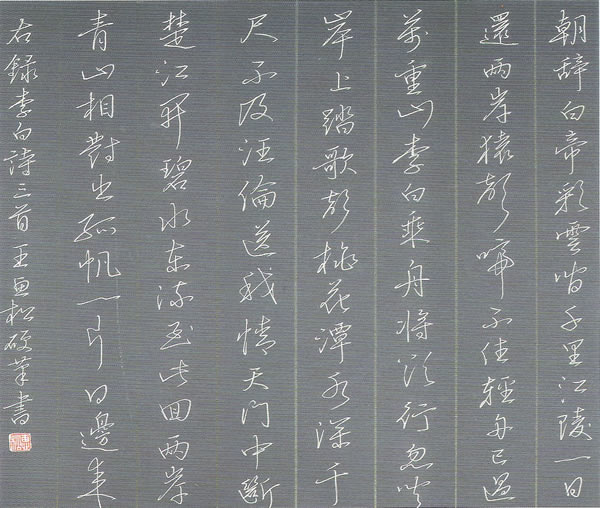 朝辭白帝彩雲間千里江陵一日
還兩岸猿聲啼不住輕舟已過
萬重山李白乘舟將欲行忽聞
岸上踏歌聲桃花潭水深千
尺不及汪倫送我情天門中斷
楚江開碧水東流至此回兩岸
青山相對出孤帆一片日邊來
右錄李白詩三首王松硬筆書